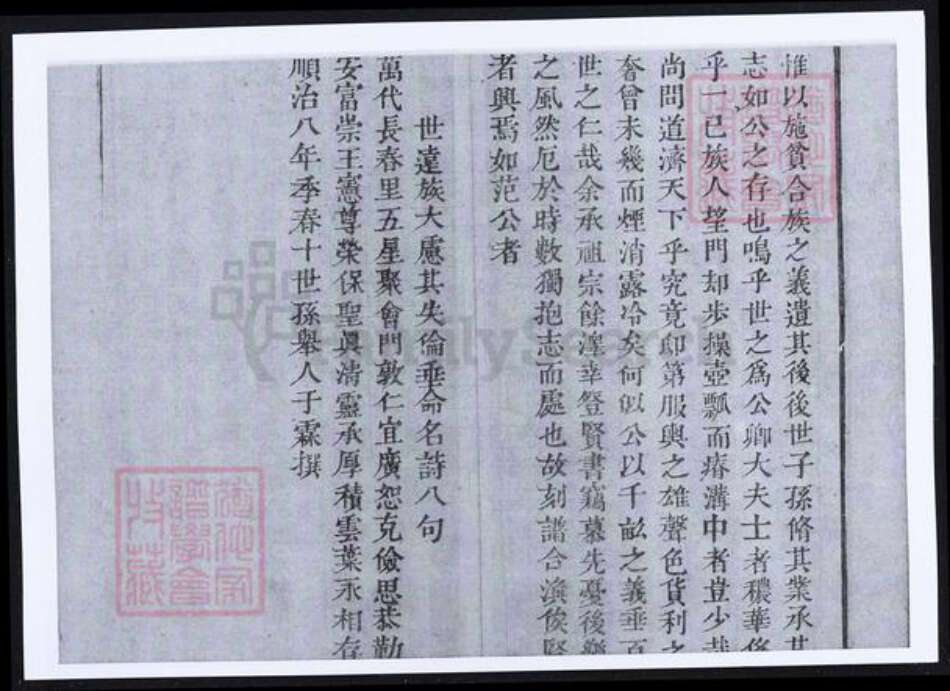 惟以施貧合族之義遺其後後世子孫脩其業承其
志如公之存也嗚乎世之為公卿大夫士者穠華侈
乎一已族人望門却步操壺瓢而瘠溝中者豈少哉
尚問道濟天下乎究竟卽第服輿之雄聲色貨利之
奢曾未幾而煙消露冷矣何似公以千畝之義垂百
世之仁哉余承祖宗餘澤幸登賢書竊慕先憂後樂
之風然厄於時數獨抱志而處也故刻譜合渙俟賢
者興焉如范公者
世遠族大慮其失倫垂命名詩八句
萬代長春里五星聚會門敦仁宜廣恕克儉思恭勤
安富崇王憲尊榮保聖眞淸靈承厚積雲葉永相存
順治八年季春十世孫舉人于霖撰
FamilySearch